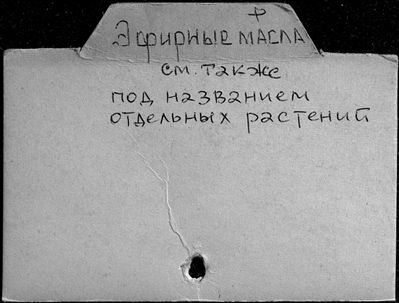 Эфирные масла
см. также
под названием
отдельных растений